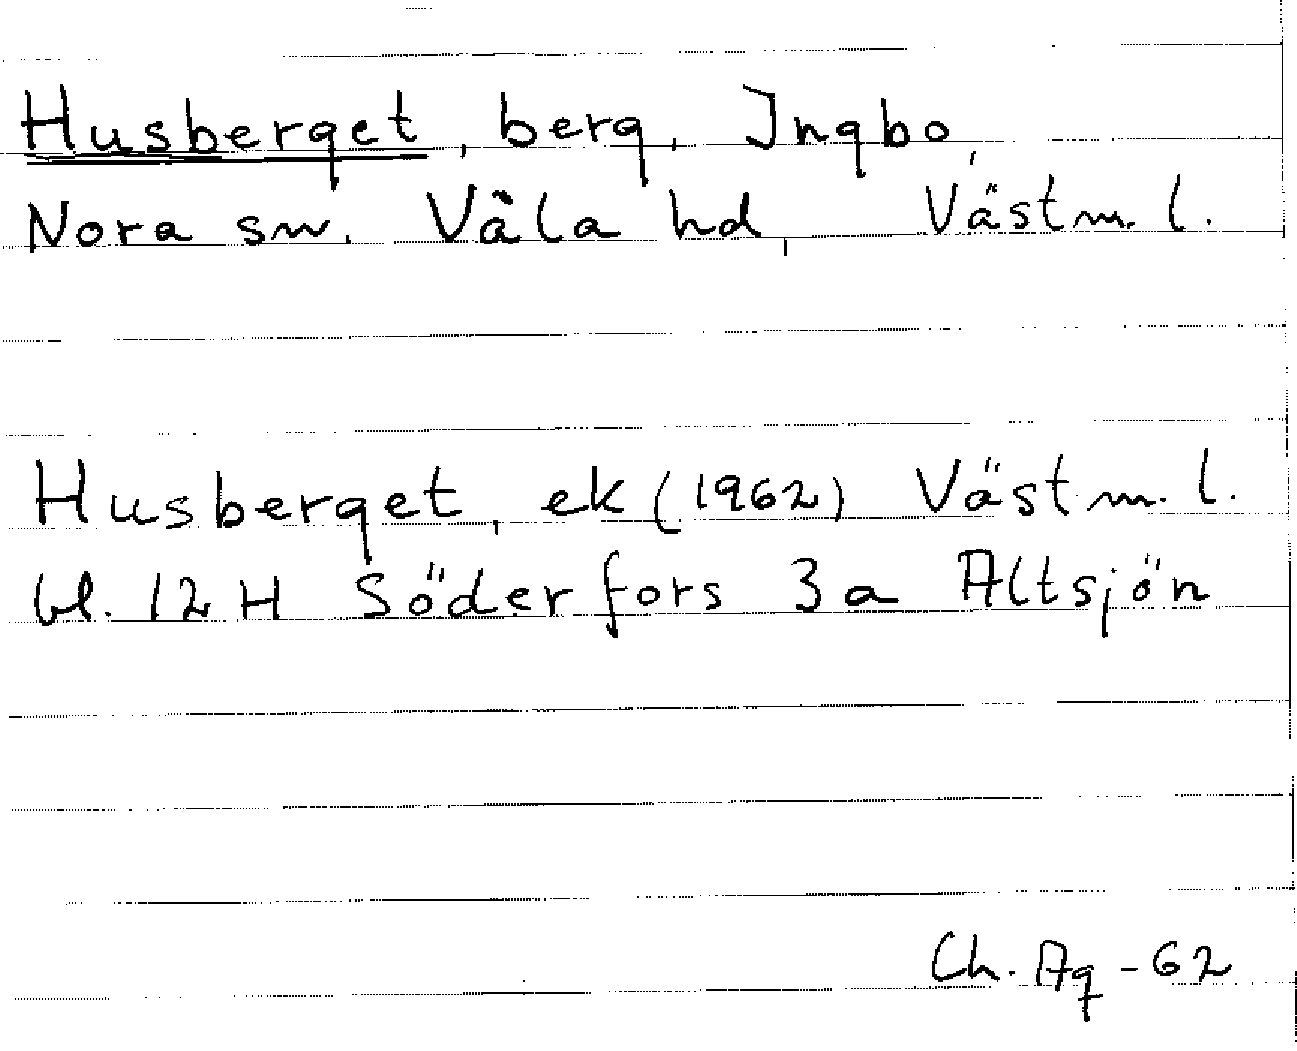 Husberget, berg, Ingbo,
Nora sn. Våla hd, Västm. l.
Husberget, ek (1962) Västm. l.
bl. 12 H Söderfors 3 a Altsjön
Ch. Ag - 62